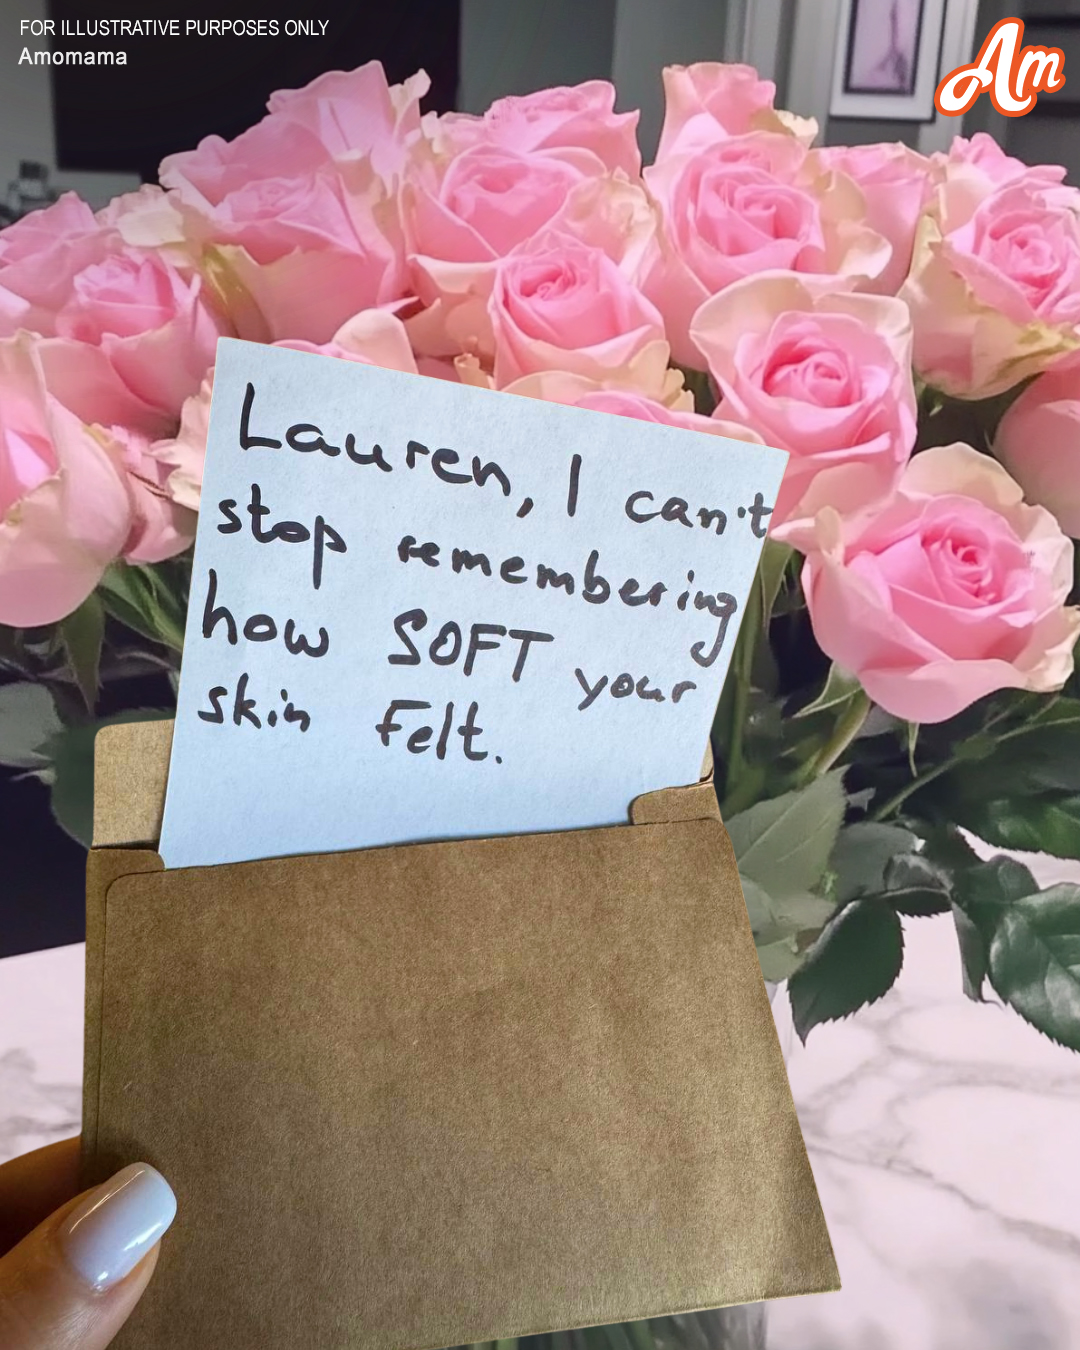 FOR ILLUSTRATIVE PURPOSES ONLY
Amomama
Am
Lauren, I can't
stop remembering
how SOFT your
skin Felt.